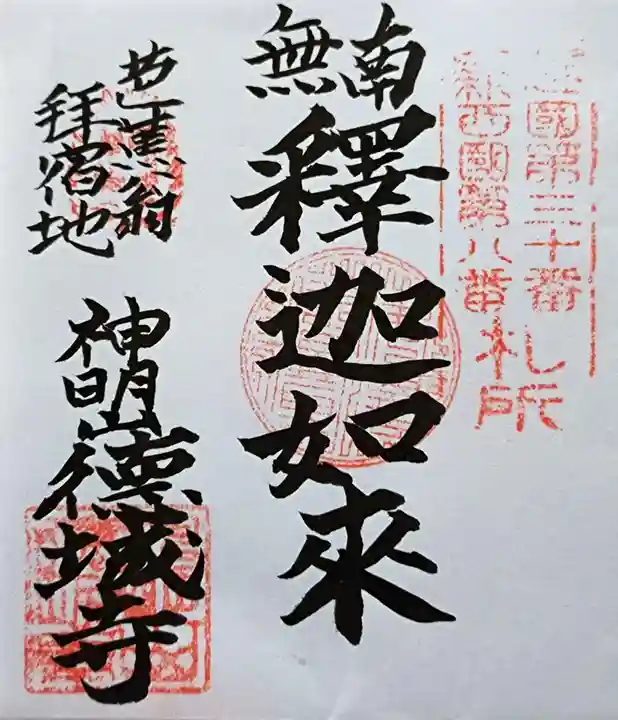 國第三十番
新西國第八番札所
南無
釋迦如來
芭蕉翁
拜宿地
神明山
德城寺